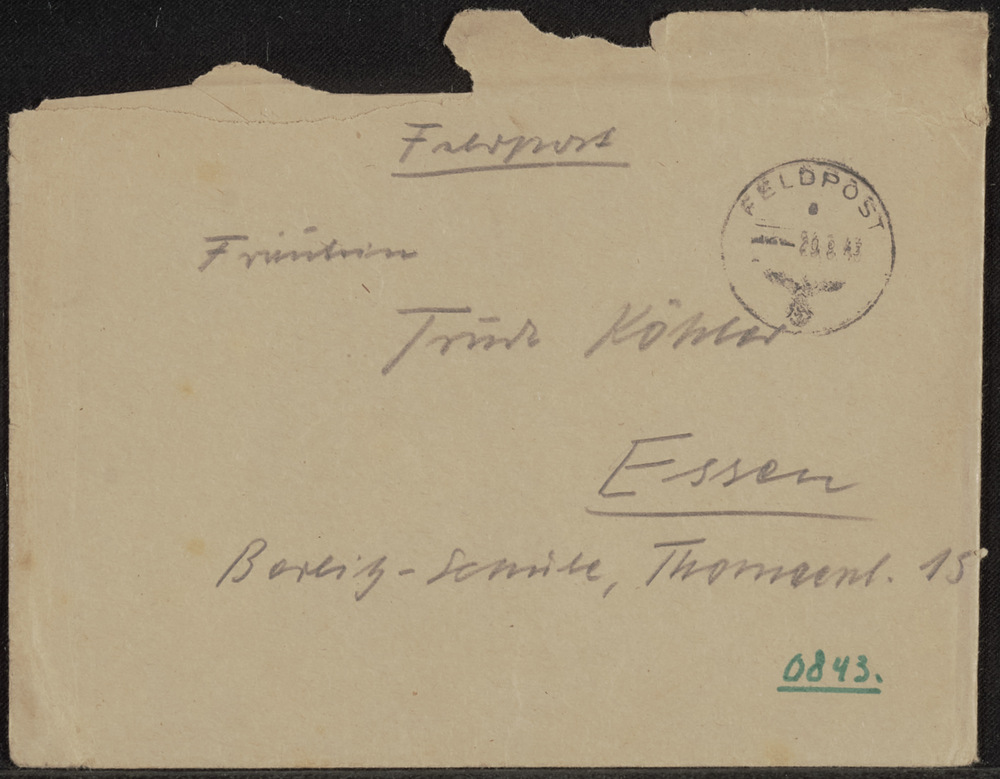 Feldpost
FELDPOST
20.8.43
Fräulein
Trude Köhler
Essen
Berlitz-Schule, 15
0843.